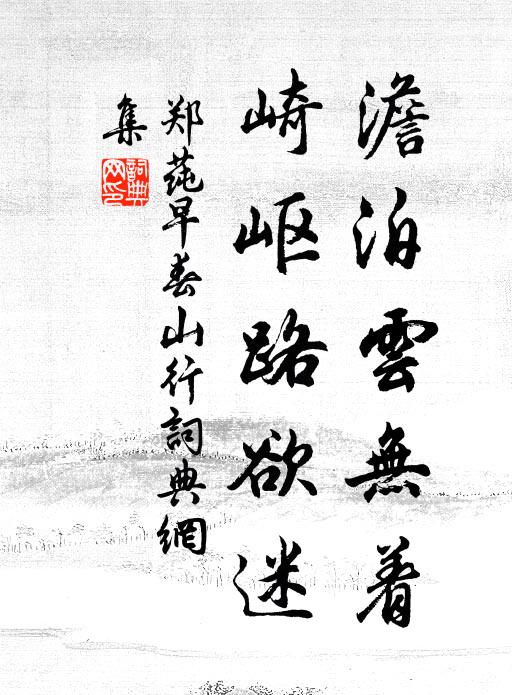 澹泊雲無着
崎岖路欲迷
郑莼早春山行詞典網
集
詞典
网印